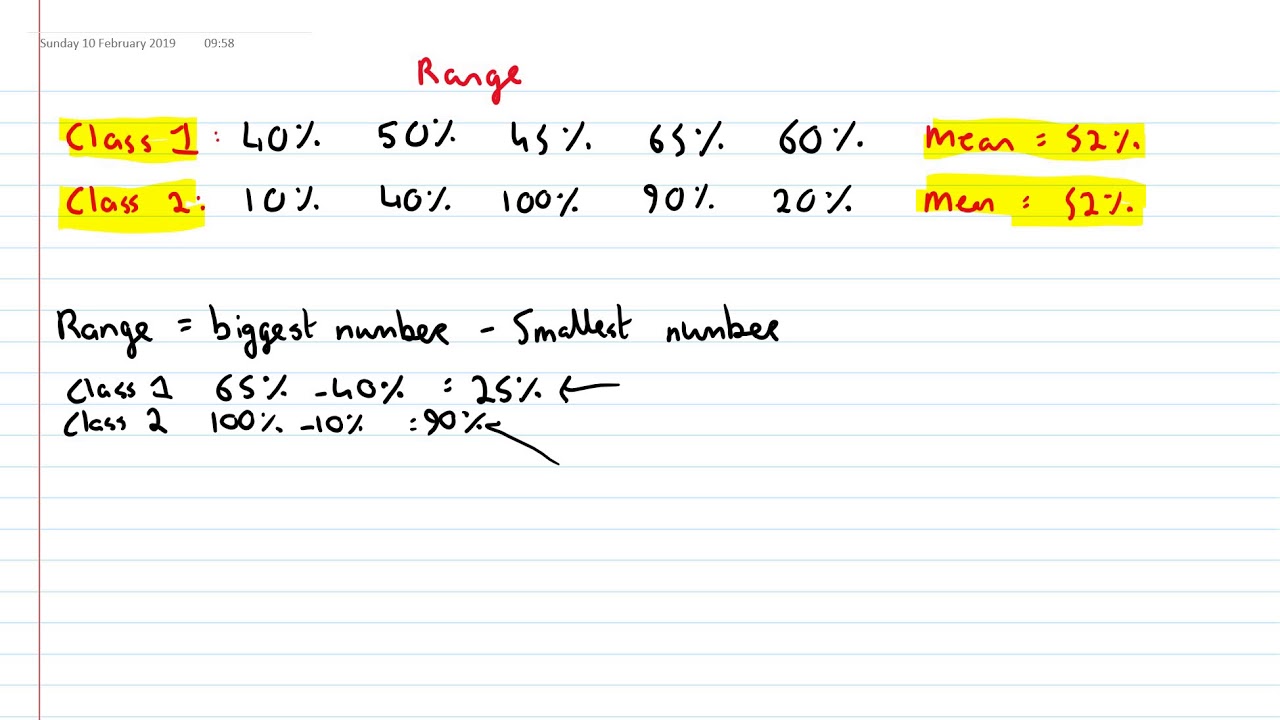 Sunday 10 February 2019 09:58
Range
Class 1 : 40% 50% 45% 65% 60% Mean = 52%.
Class 2 : 10% 40% 100% 90% 20% Mean = 52%.
Range = biggest number - Smallest number
Class 1 65% - 40% = 25%
Class 2 100% - 10% = 90%